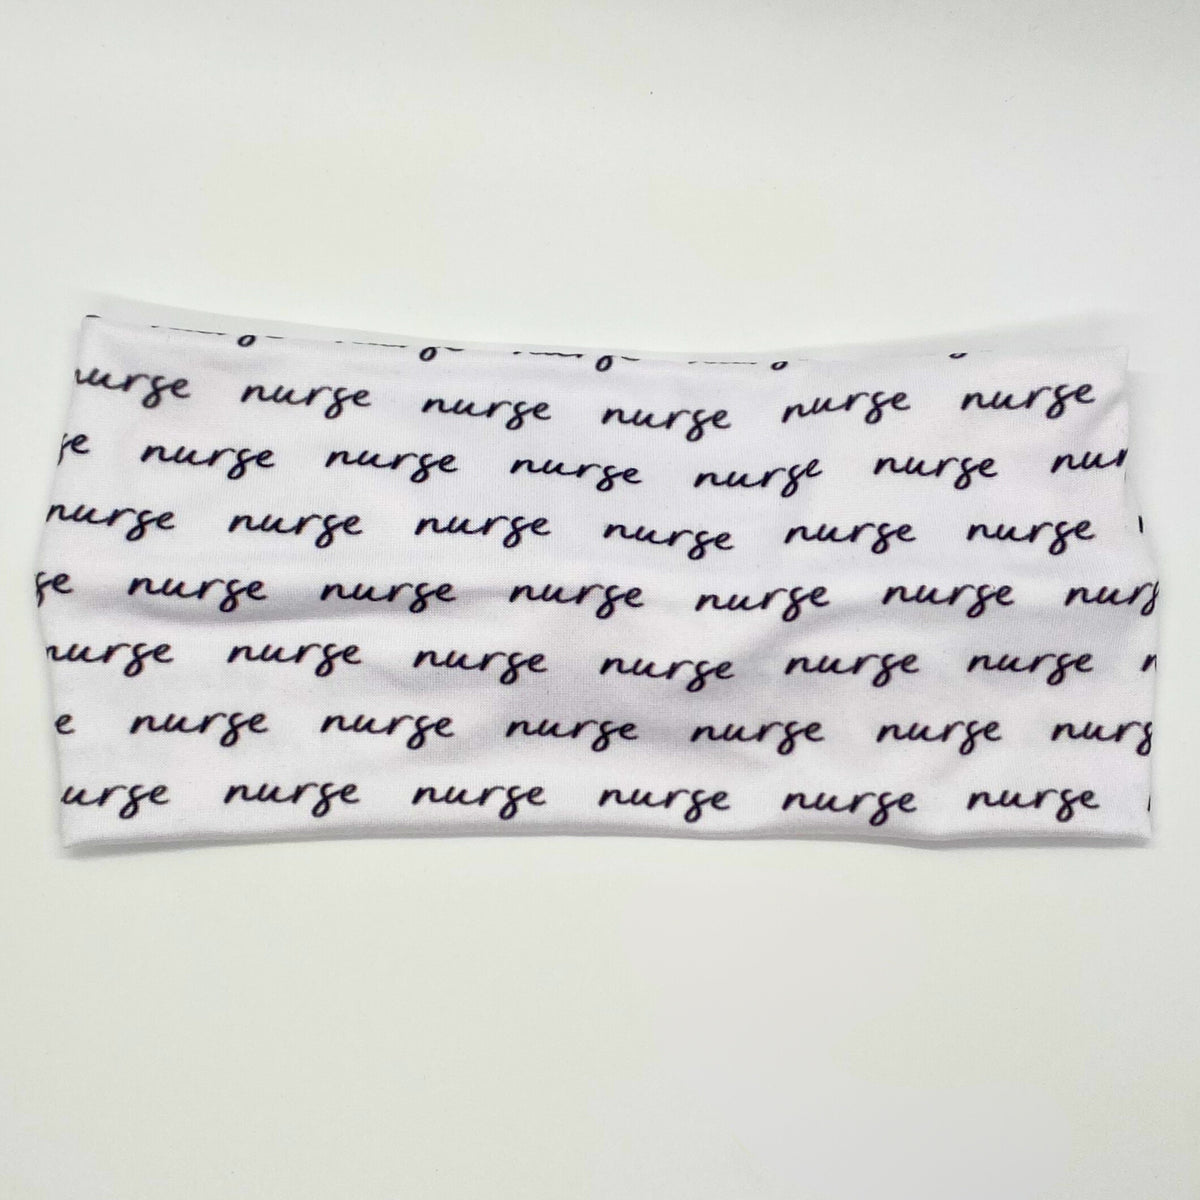 nurse nurse nurse nurse nurse nurse
se nurse nurse nurse nurse nurse nur
nurse nurse nurse nurse nurse nurse
se nurse nurse nurse nurse nurse nurs
nurse nurse nurse nurse nurse nurse n
e nurse nurse nurse nurse nurse nurs
urse nurse nurse nurse nurse nurse